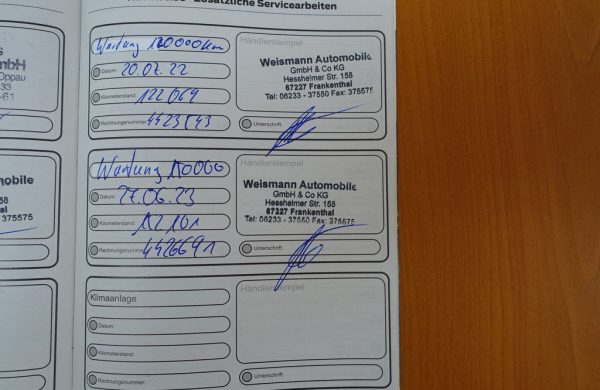 Zusätzliche Servicearbeiten
GmbH
Oppau
33
-61
Wartung 120000km
Datum: 20.07.22
Kilometerstand: 122069
Rechnungsnummer:
Händlerstempel
Weismann Automobile
GmbH & Co KG
Hessheimer Str. 158
67227 Frankenthal
Tel: 06233 - 37550 Fax: 375575
Unterschrift:
mobile
158
thal
375575
Wartung 150000
Datum: 27.06.23
Kilometerstand:
Rechnungsnummer: 4426691
Händlerstempel
Weismann Automobile
GmbH & Co KG
Hessheimer Str. 158
67227 Frankenthal
Tel: 06233 - 37550 Fax: 375575
Unterschrift:
Klimaanlage
Datum:
Kilometerstand:
Rechnungsnummer:
Händlerstempel
Unterschrift: